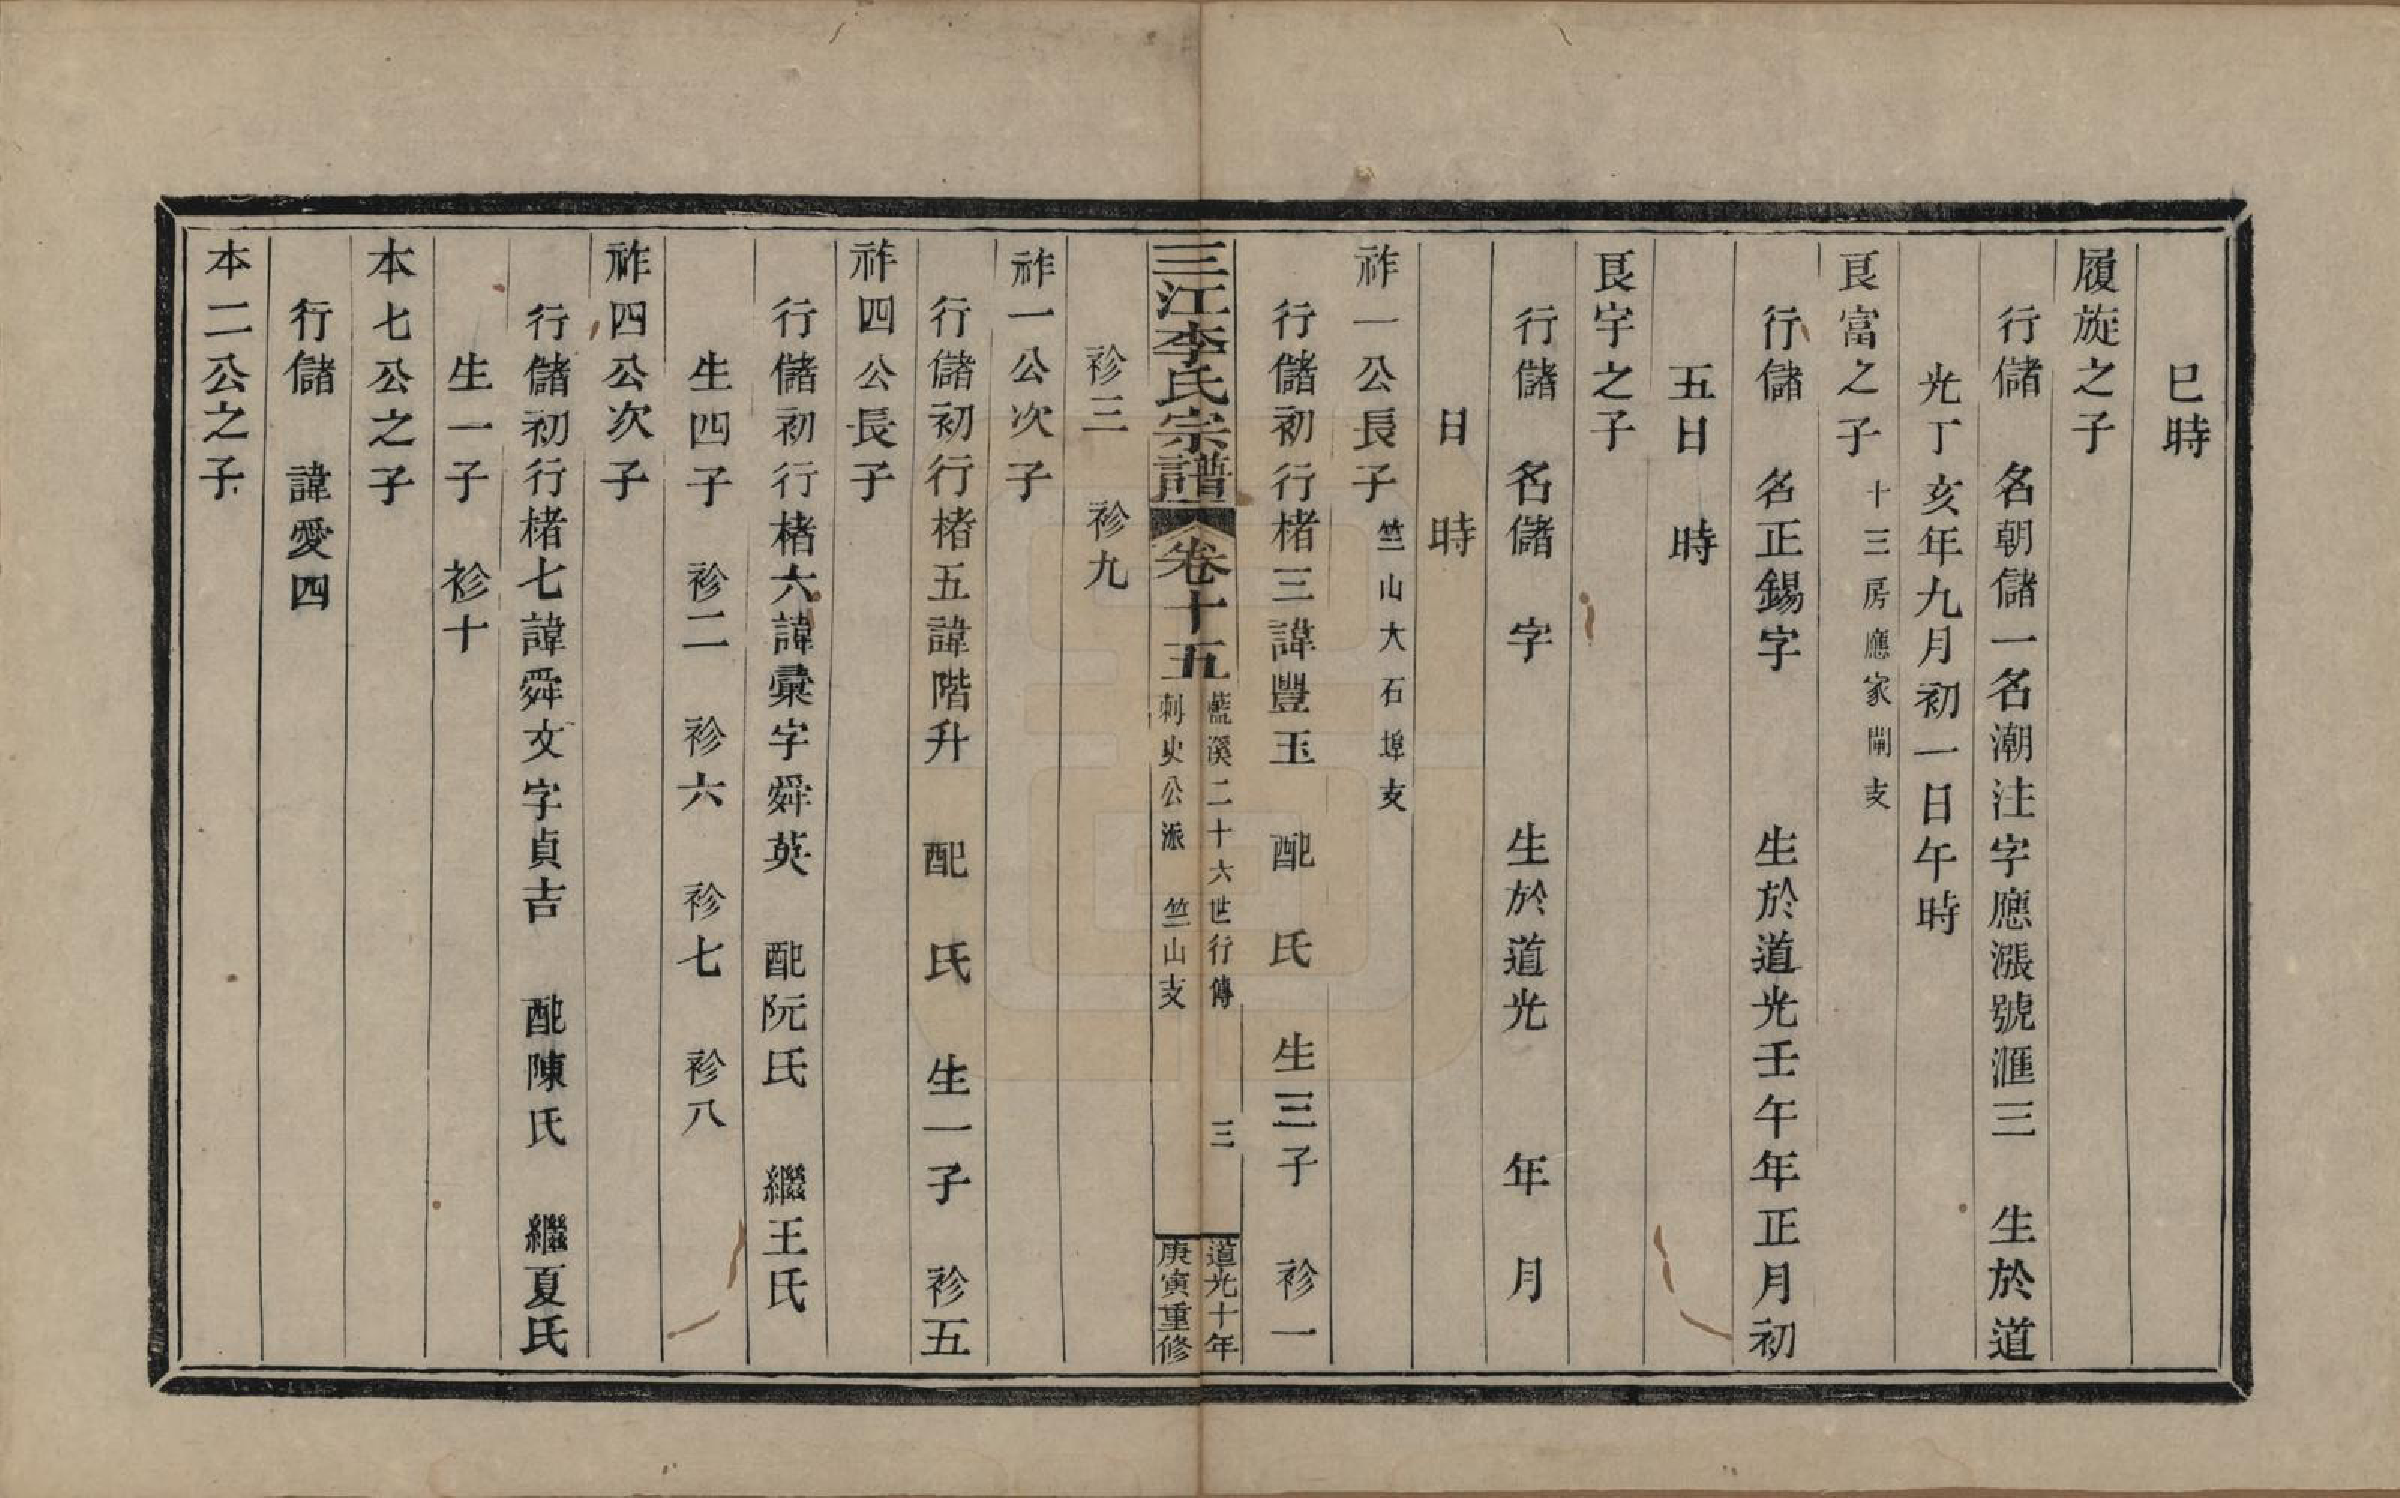 巳時
履旋之子
行儲　名朝儲一名潮注字應漲號滙三　生於道
光丁亥年九月初一日午時
艮富之子　十三房應家閘支
行儲　名正錫字　　生於道光壬午年正月初
五日　時
艮宇之子
行儲　名儲　字　　生於道光　　年　月
日　時
祚一公長子　竺山大石埠支
行儲初行楮三諱豐玉　配　氏　生三子　袗一
三江李氏宗譜　卷十五　藍溪二十六世行傳　三　道光十年
刺史公派　竺山支　庚寅重修
袗三　袗九
祚一公次子
行儲初行楮五諱階升　配　氏　生一子　袗五
祚四公長子
行儲初行楮六諱彙字舜英　配阮氏　繼王氏
生四子　袗二　袗六　袗七　袗八
祚四公次子
行儲初行楮七諱舜文字貞吉　配陳氏　繼夏氏
生一子　袗十
本七公之子
行儲　諱愛四
本二公之子